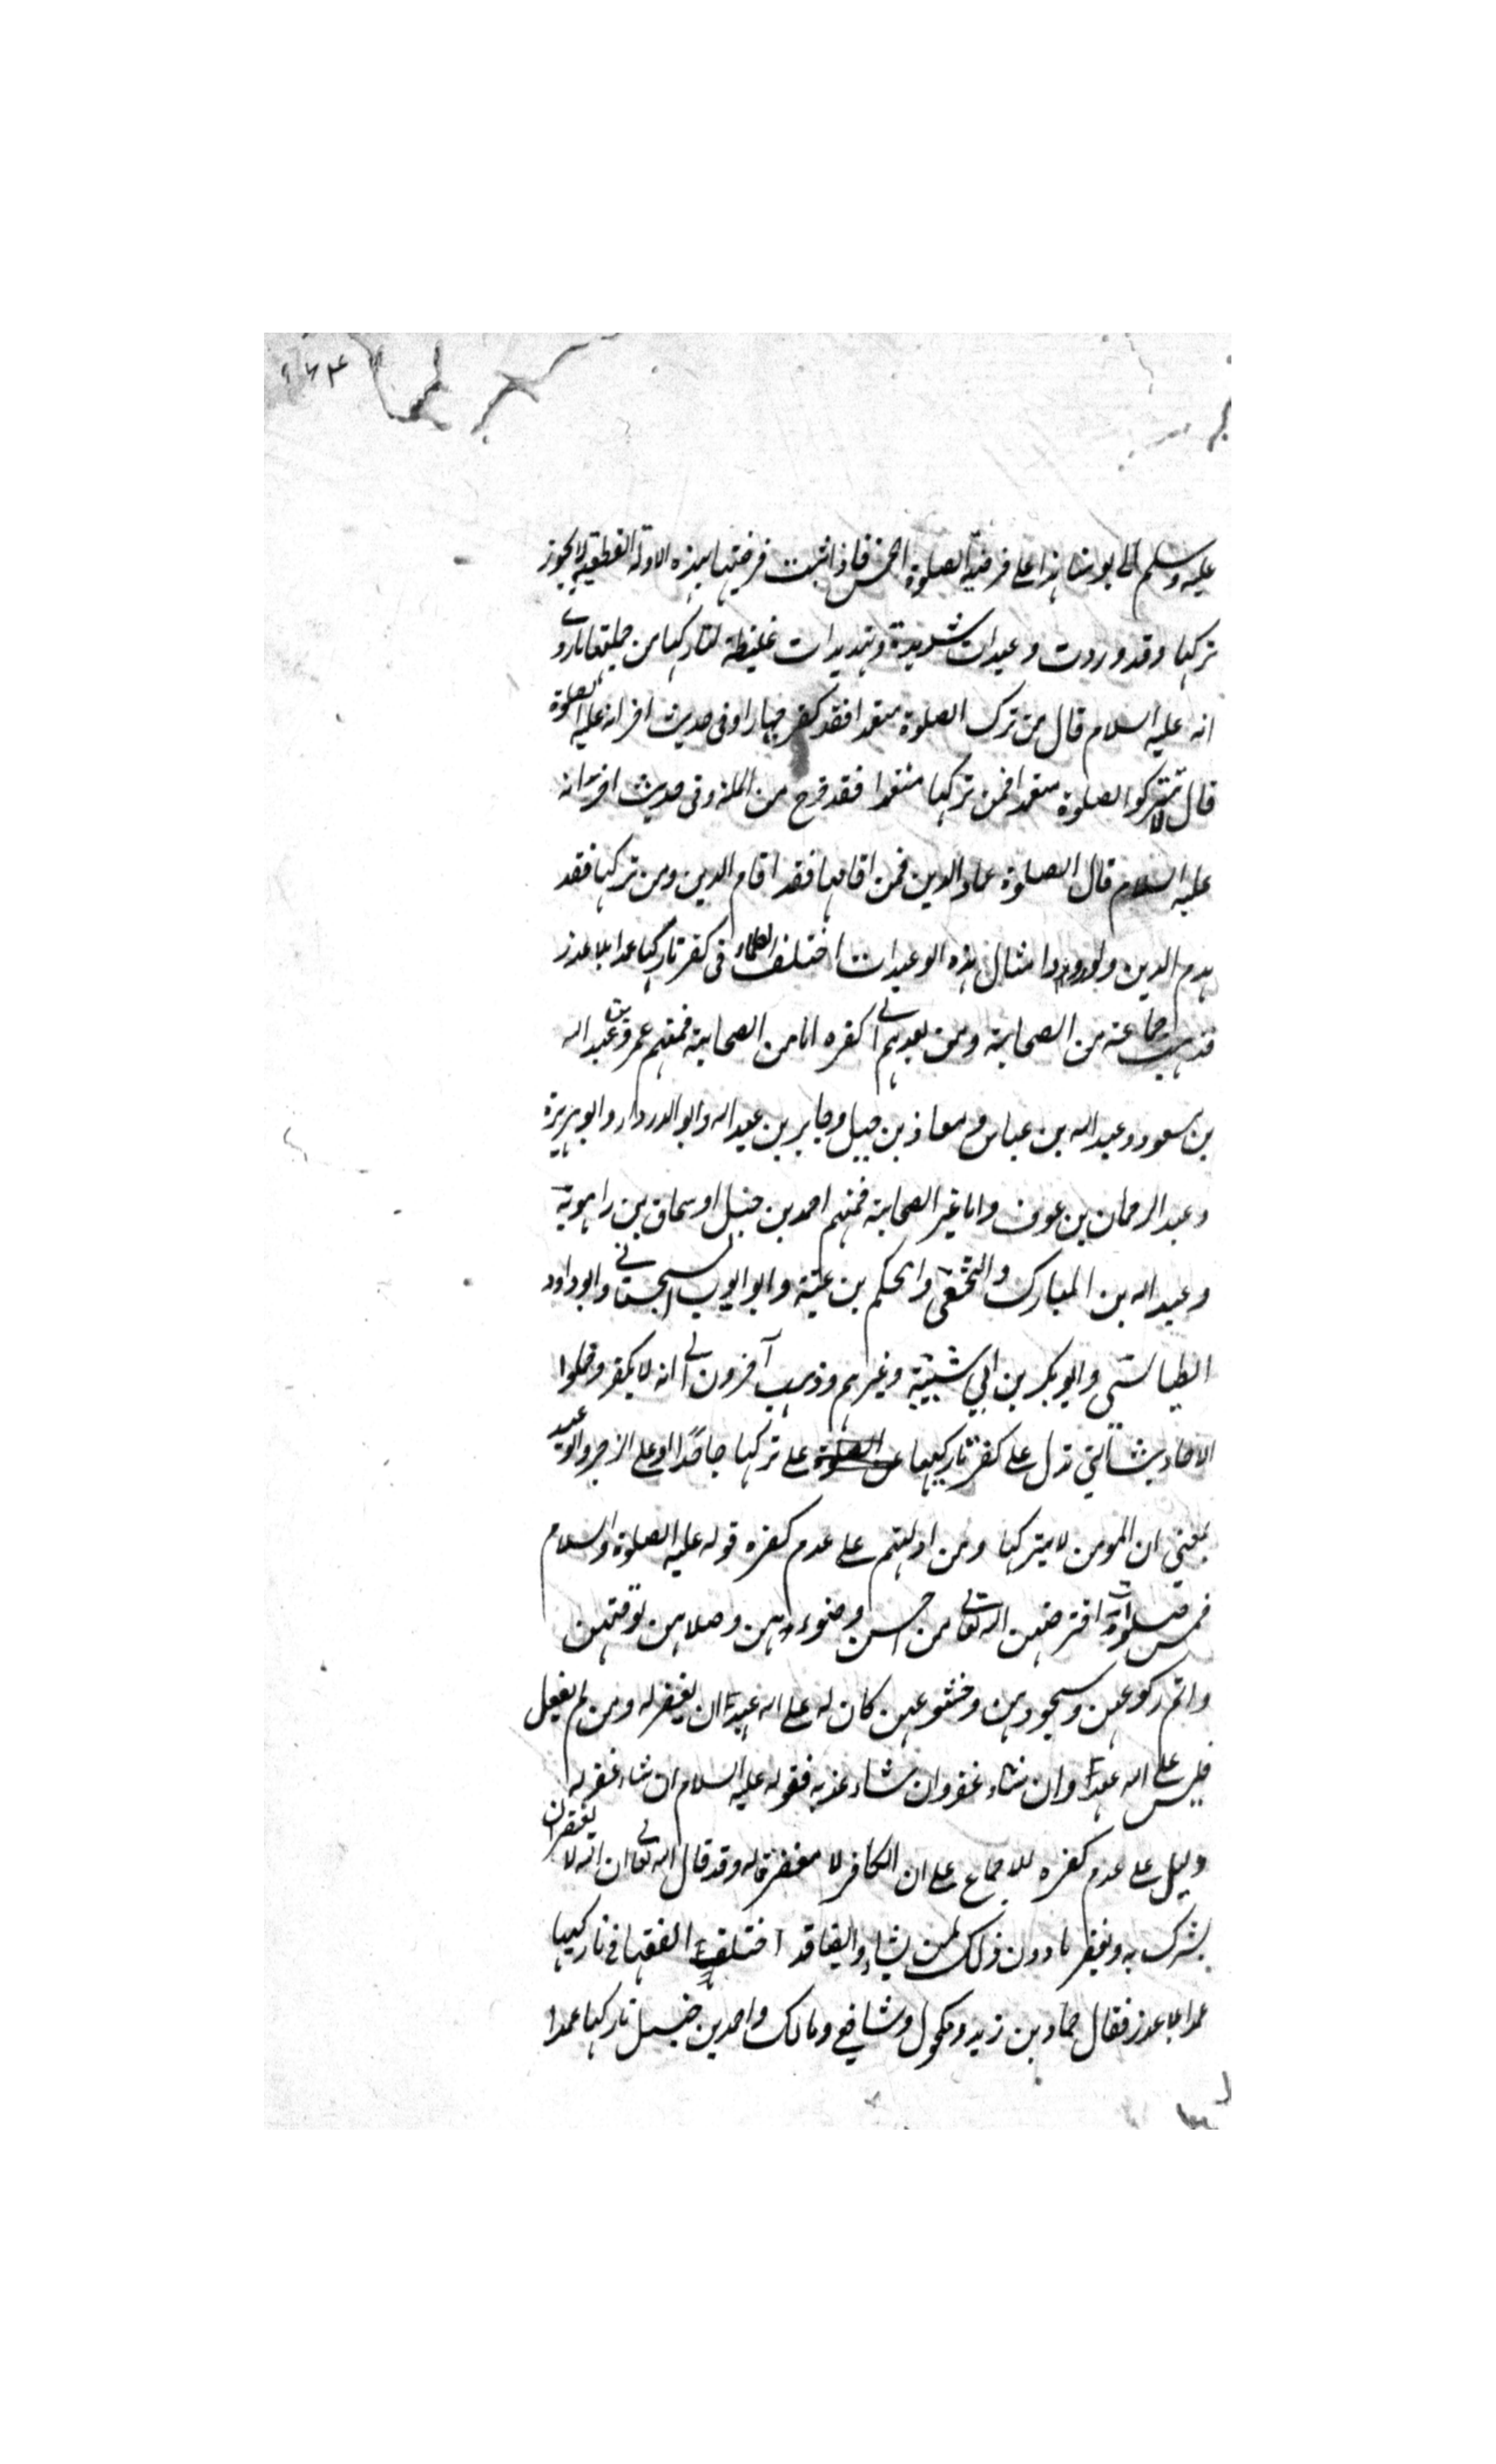 ۱۶۴
عليه وسلم الى يومنا هذا على فرضية الصلوة الخمس فاذا ثبت فرضيتها بهذه الادلة القطعية لا يجوز
تركها وقد وردت وعيدات شديدة وتهديدات غليظة لتاركها من جملتها ما روى
انه عليه السلام قال من ترك الصلوة متعمدا فقد كفر جهارا وفى حديث اخر انه عليه الصلوة
قال لا تتركوا الصلوة متعمدا فمن تركها متعمدا فقد خرج من الملة وفى حديث اخر انه
عليه السلام قال الصلوة عماد الدين فمن اقامها فقد اقام الدين ومن تركها فقد
هدم الدين ولورود امثال هذه الوعيدات اختلف العلماء فى كفر تاركها عمدا بلا عذر
فذهب جماعة من الصحابة ومن بعدهم الى كفره اما من الصحابة فمنهم عمر وعبد الله
بن مسعود وعبد الله بن عباس ومعاذ بن جبل وجابر بن عبد الله وابو الدرداء وابو هريرة
وعبد الرحمان بن عوف واما غير الصحابة فمنهم احمد بن حنبل واسحاق بن راهوية
وعبد الله بن المبارك والنخعى والحكم بن عتيبة وابو ايوب السجستانى وابو داود
الطيالسى وابو بكر بن ابي شيبة وغيرهم وذهب آخرون الى انه لا يكفر وحملوا
الاحاديث التى تدل على كفر تاركها على تركها جاحدًا او على الزجر والوعيد
بمعنى ان المومن لا يتركها ومن ادلتهم على عدم كفره قوله عليه الصلوة والسلام
خمس صلوات افترضهن الله تعالى من احسن وضوءهن وصلاهن لوقتهن
واتم ركوعهن وسجودهن وخشوعهن كان له على الله عهدا ان يغفر له ومن لم يفعل
فليس على الله عهدا وان شاء غفر وان شاء عذبه فقوله عليه السلام ان شاء غفر له
دليل على عدم كفره للاجماع على ان الكافر لا مغفرة له وقد قال الله تعالى ان الله لا يغفر ان
يشرك به ويغفر ما دون ذلك لمن يشاء وايضا قد اختلف الفقها فى تاركها
عمدا بلا عذر فقال حماد بن زيد ومكحول وشافعى ومالك واحمد بن حنبل تاركها عمدا